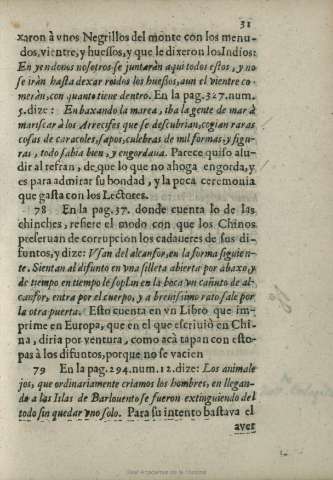 31
xaron à vnos Negrillos del monte con los menu-
dos, vientre, y huessos, y que le dixeron los Indios:
En yendonos nosotros se juntaràn aqui todos estos, y no
se iràn hasta dexar roidos los huessos, aun el vientre co-
meràn, con quanto tiene dentro. En la pag. 327. num.
5. dize: En baxando la marea, iba la gente de mar à
mariscar à los Arrecifes que se descubrian, cogian raras
cosas de caracoles, sapos, culebras de mil formas, y figu-
ras, todo sabia bien, y engordaua. Parece quiso alu-
dir al refran, de que lo que no ahoga engorda, y
es para admirar su bondad, y la poca ceremonia
que gasta con los Lectores.
78 En la pag. 37. donde cuenta lo de las
chinches, refiere el modo con que los Chinos
preseruan de corrupcion los cadaueres de sus di-
funtos, y dize: Vsan del alcanfor, en la forma siguien-
te. Sientan al difunto en vna silleta abierta por abaxo, y
de tiempo en tiempo le soplan en la boca vn cañuto de al-
canfor, entra por el cuerpo, y a breuissimo rato sale por
la otra puerta. Esto cuenta en vn Libro que im-
prime en Europa, que en el que escriuiò en Chi-
na, diria por ventura, como acà tapan con esto-
pas à los difuntos, porque no se vacien
79 En la pag. 294. num. 12. dize: Los animale
jos, que ordinariamente criamos los hombres, en llegan-
do a las Islas de Barlouento se fueron extinguiendo del
todo sin quedar vno solo. Para su intento bastava el
aver
Real Academia de la Historia